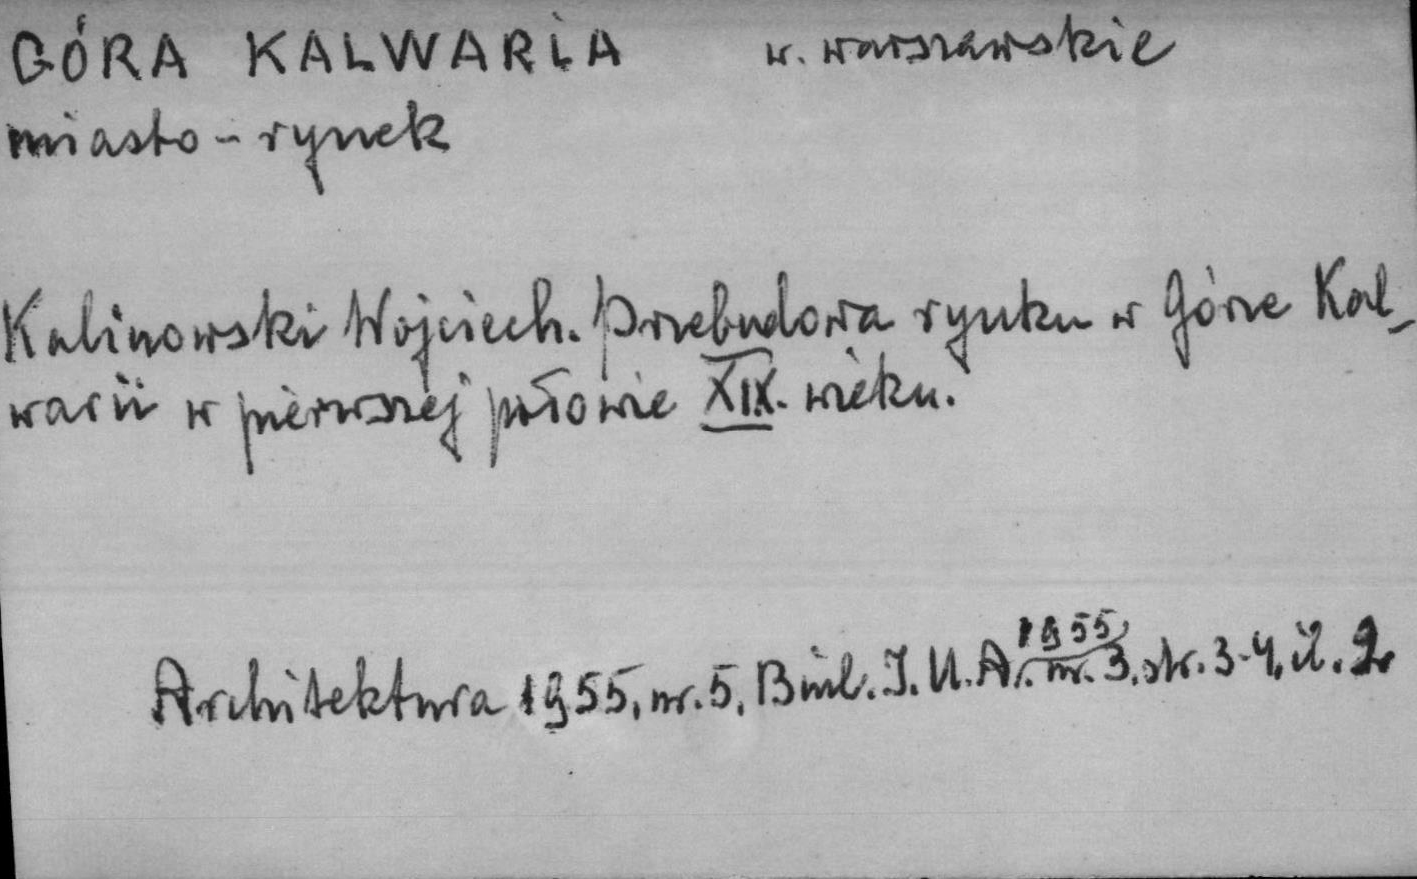 GÓRA KALWARIA w. warszawskie
miasto - rynek
Kalinowski Wojciech. Przebudowa rynku w Górze Kal-
warii w pierwszej połowie XIX. wieku.
1955
Architektura 1955, nr. 5, Biul. I. U. A. nr. 3, str. 3-4, il. 2.